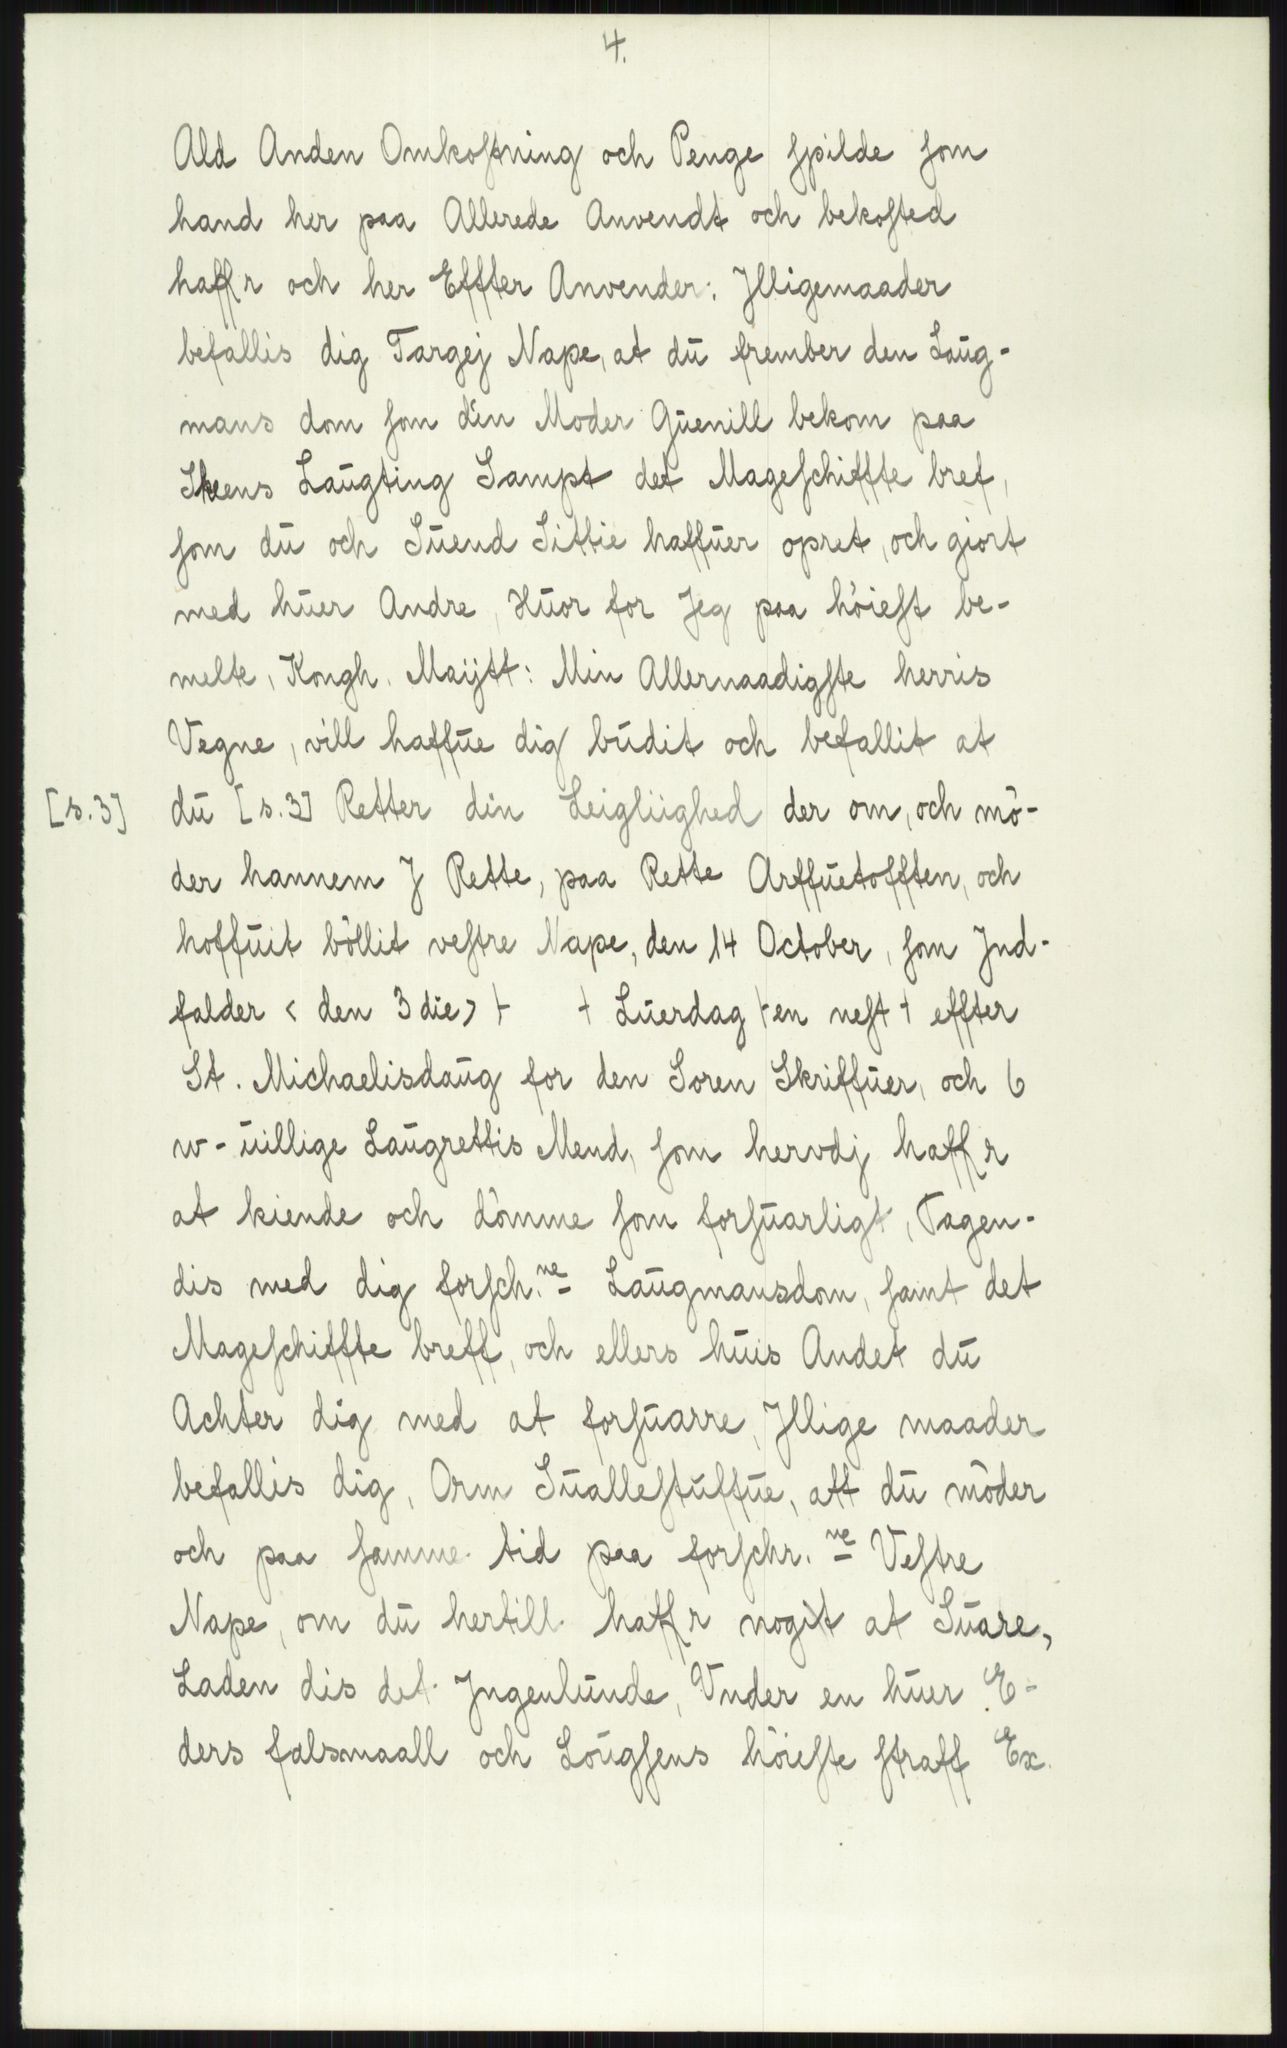 4.
Ald Anden Omkostning och Penge spilde som
hand her paa Allerede Anvendt och bekosted
haffr och her Effter Anvender: Jlligemaader
befallis dig Targej Nape, at dū frember den Laūg-
mans dom som din Moder Gūenill bekom paa
Skeens Laūgting Sampt det Mageschiffte bref,
som dū och Sūend Sittie haffūer opret, och giort
med hūer Andre, Hūor for Jeg paa höiest be-
melte, Kongh. Maijtt: Min Allernaadigste herris
Vegne, vill haffūe dig būdit och befallit at
[s.3] dū [s.3] Retter din Leigliighed der om, och mö-
der hannem J Rette, paa Rette Arffūetofften, och
hoffūit böllit vestre Nape, den 14 October, som Jnd-
falder < den 3 die> + + Lūerdag +en nest + effter
St. Michaelisdaūg for den Soren Skriffūer, och 6
w-ūillige Laūgrettis Mend, som hervdj haffr
at kiende och dömme som forsūarligt, Tagen-
dis med dig forsch.ne Laūgmansdom, samt det
Mageschiffte breff, och ellers hūis Andet dū
Achter dig med at forsūarre, Jllige maader
befallis dig, Orm Sūallestūffūe, att dū möder
och paa samme tid paa forschr.ne Vestre
Nape, om dū hertill haffr nogit at Sūare,
Laden dis det Jngenlūnde, Vnder en hūer E-
ders falsmaall och Loūgsens höieste straff Ex.